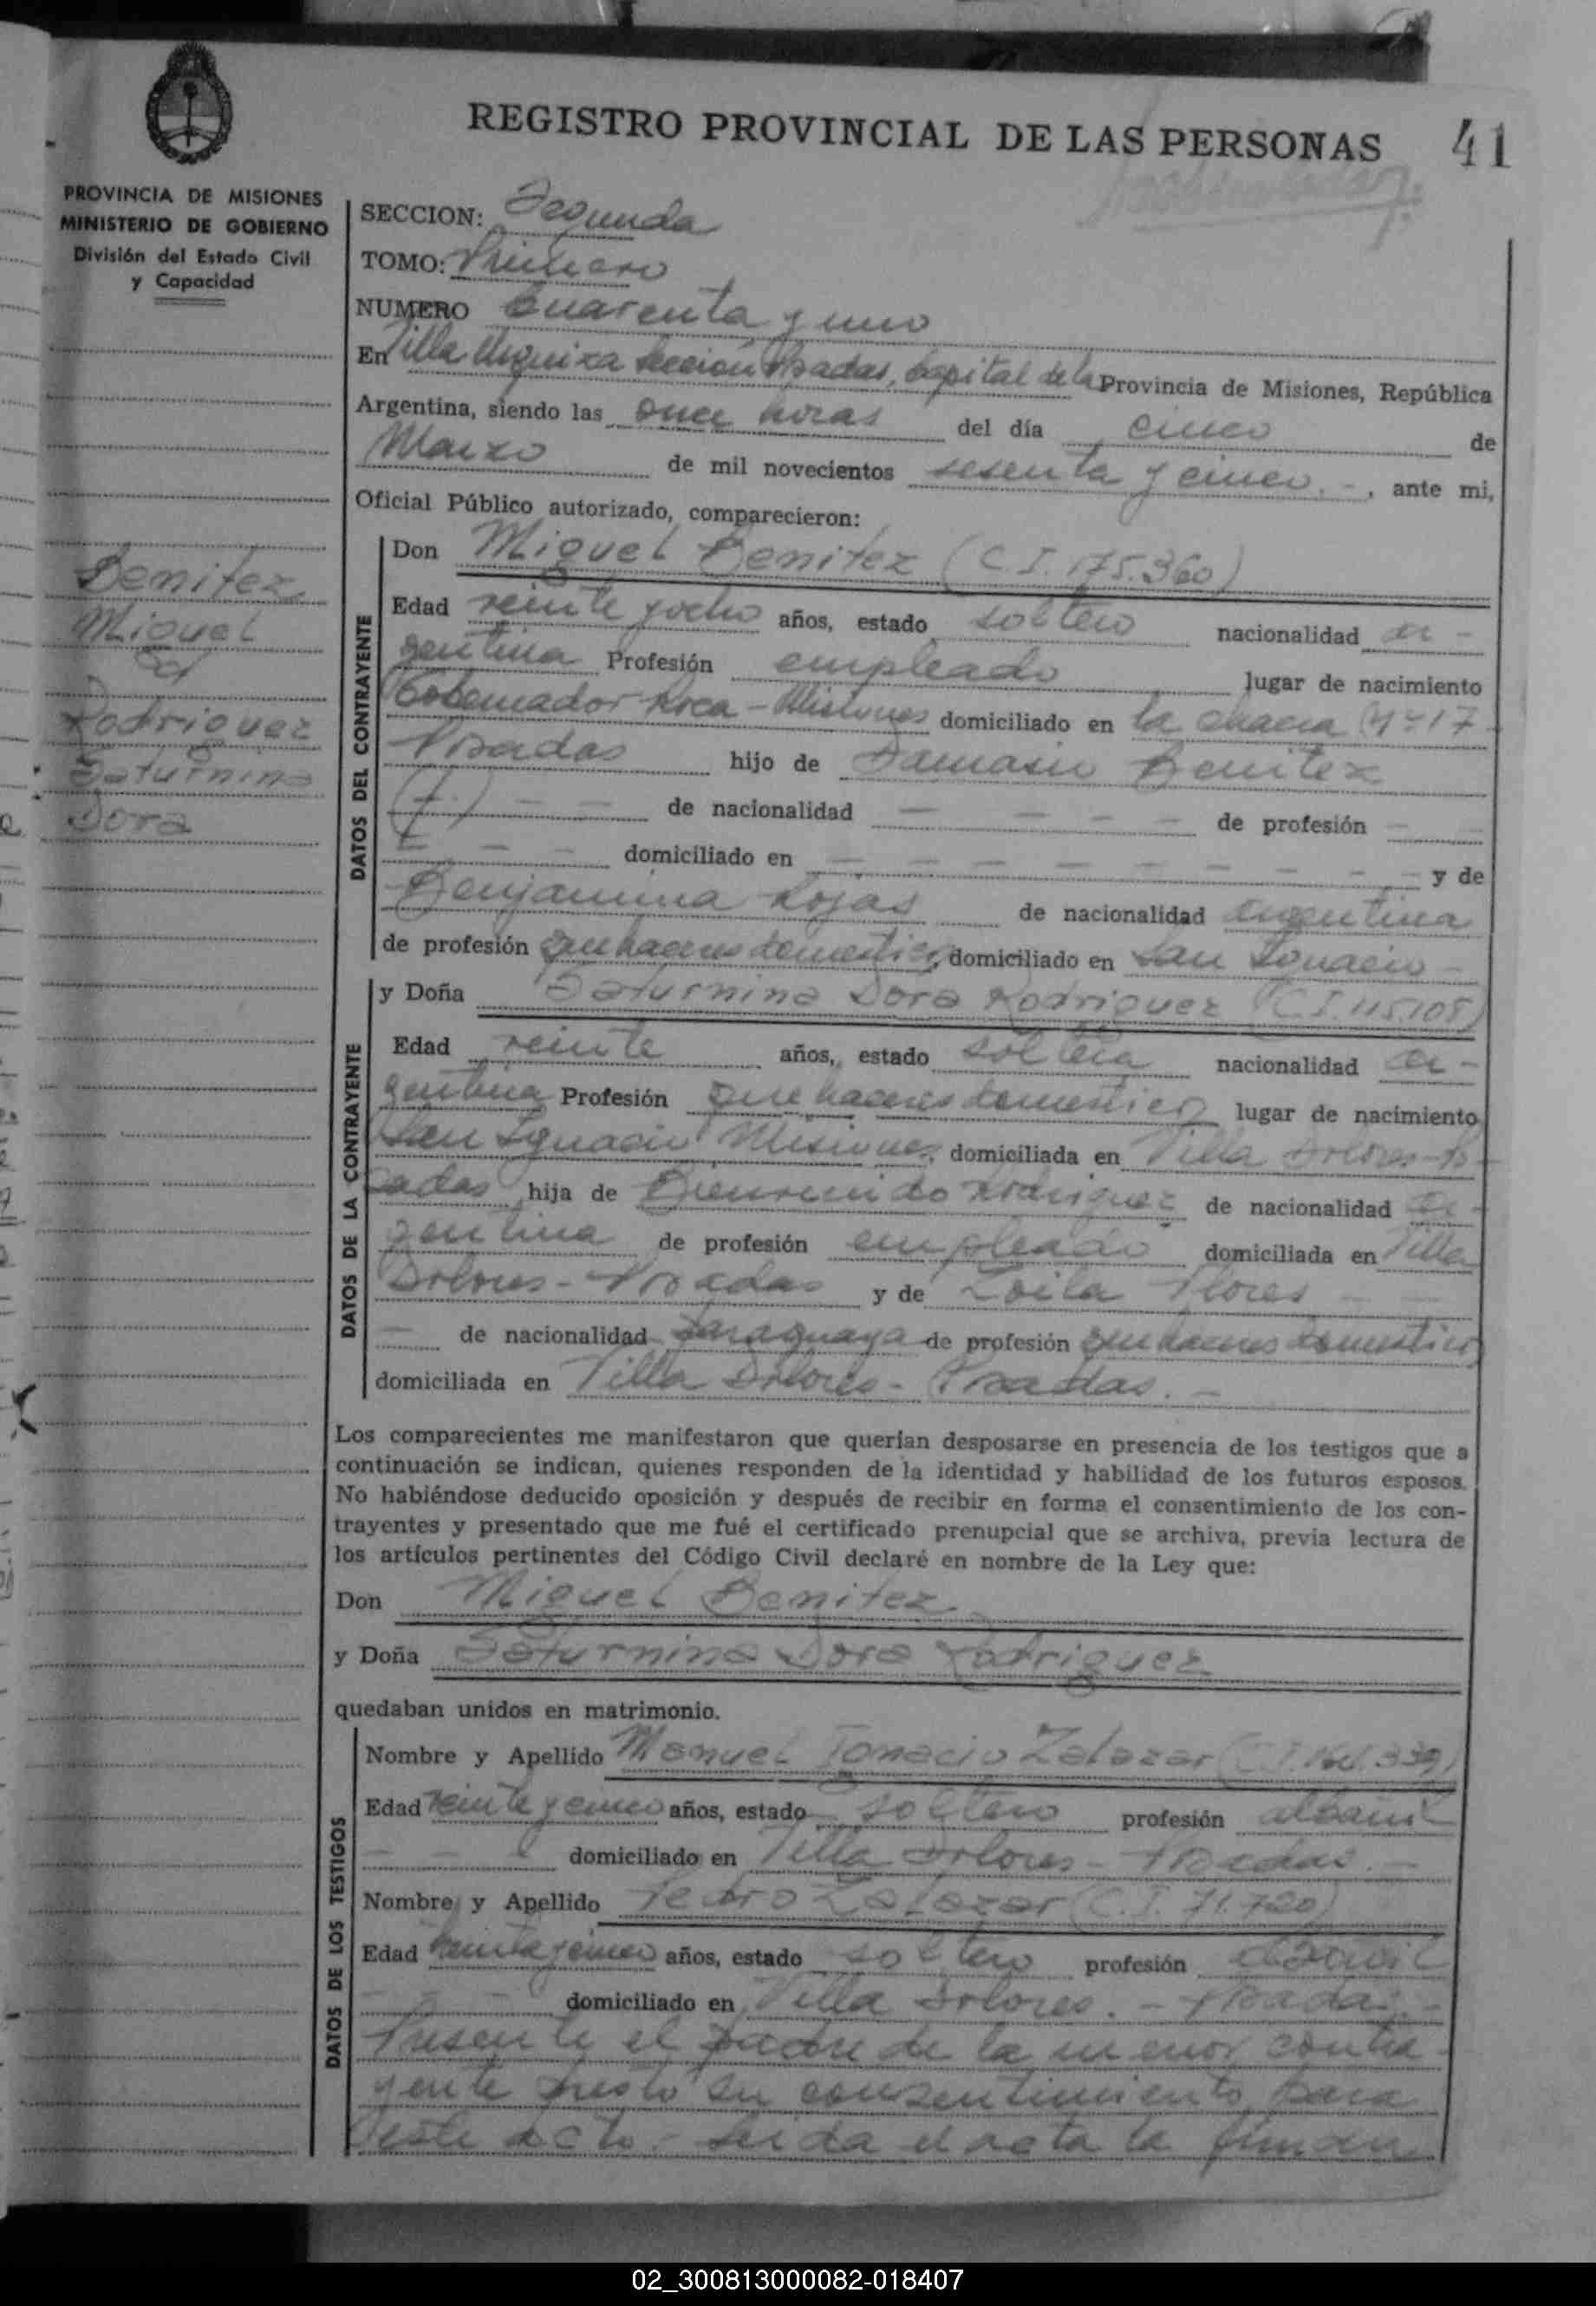 REGISTRO PROVINCIAL DE LAS PERSONAS 41
PROVINCIA DE MISIONES
MINISTERIO DE GOBIERNO
División del Estado Civil
y Capacidad
SECCION: Segunda
TOMO: Primero
NUMERO Cuarenta y uno
En Villa Urquiza Sección Posadas, Capital de la Provincia de Misiones, República
Argentina, siendo las once horas del día cinco de
Marzo de mil novecientos sesenta y cinco. -, ante mi,
Oficial Público autorizado, comparecieron:
Benitez
Miguel
Rodriguez
Saturnina
Dora
DATOS DEL CONTRAYENTE
Don Miguel Benitez (C.I. 175.360)
Edad veinte y ocho años, estado soltero nacionalidad ar-
gentina Profesión empleado lugar de nacimiento
Gobernador Roca - Misiones domiciliado en la chacra Nº 17
Posadas hijo de Damasio Benitez
(+) - - de nacionalidad - - - - de profesión -
- - - domiciliado en - - - - - - - - y de
Benjamina Rojas de nacionalidad argentina
de profesión quehaceres domesticos, domiciliado en San Ignacio -
DATOS DE LA CONTRAYENTE
y Doña Saturnina Dora Rodriguez (C.I. 115.108)
Edad veinte años, estado soltera nacionalidad ar-
gentina Profesión quehaceres domesticos lugar de nacimiento
San Ignacio Misiones, domiciliada en Villa Dolores - Po-
sadas hija de Bienvenido Rodriguez de nacionalidad ar-
gentina de profesión empleado domiciliada en Villa
Dolores - Posadas y de Zoila Flores - -
- de nacionalidad paraguaya de profesión quehaceres domesticos
domiciliada en Villa Dolores - Posadas. -
Los comparecientes me manifestaron que querían desposarse en presencia de los testigos que a
continuación se indican, quienes responden de la identidad y habilidad de los futuros esposos.
No habiéndose deducido oposición y después de recibir en forma el consentimiento de los con-
trayentes y presentado que me fué el certificado prenupcial que se archiva, previa lectura de
los artículos pertinentes del Código Civil declaré en nombre de la Ley que:
Don Miguel Benitez
y Doña Saturnina Dora Rodriguez
quedaban unidos en matrimonio.
DATOS DE LOS TESTIGOS
Nombre y Apellido Manuel Ignacio Zalazar (C.I.
Edad veinte y cinco años, estado soltero profesión albañil
- - - domiciliado en Villa Dolores - Posadas. -
Nombre y Apellido Pedro Zalazar (C.I. 71.720)
Edad años, estado soltero profesión albañil
- - - domiciliado en Villa Dolores. - Posadas. -
Presente el padre de la menor contra-
yente prestó su consentimiento para
este acto. - Leida el acta la firman
02_300813000082-018407